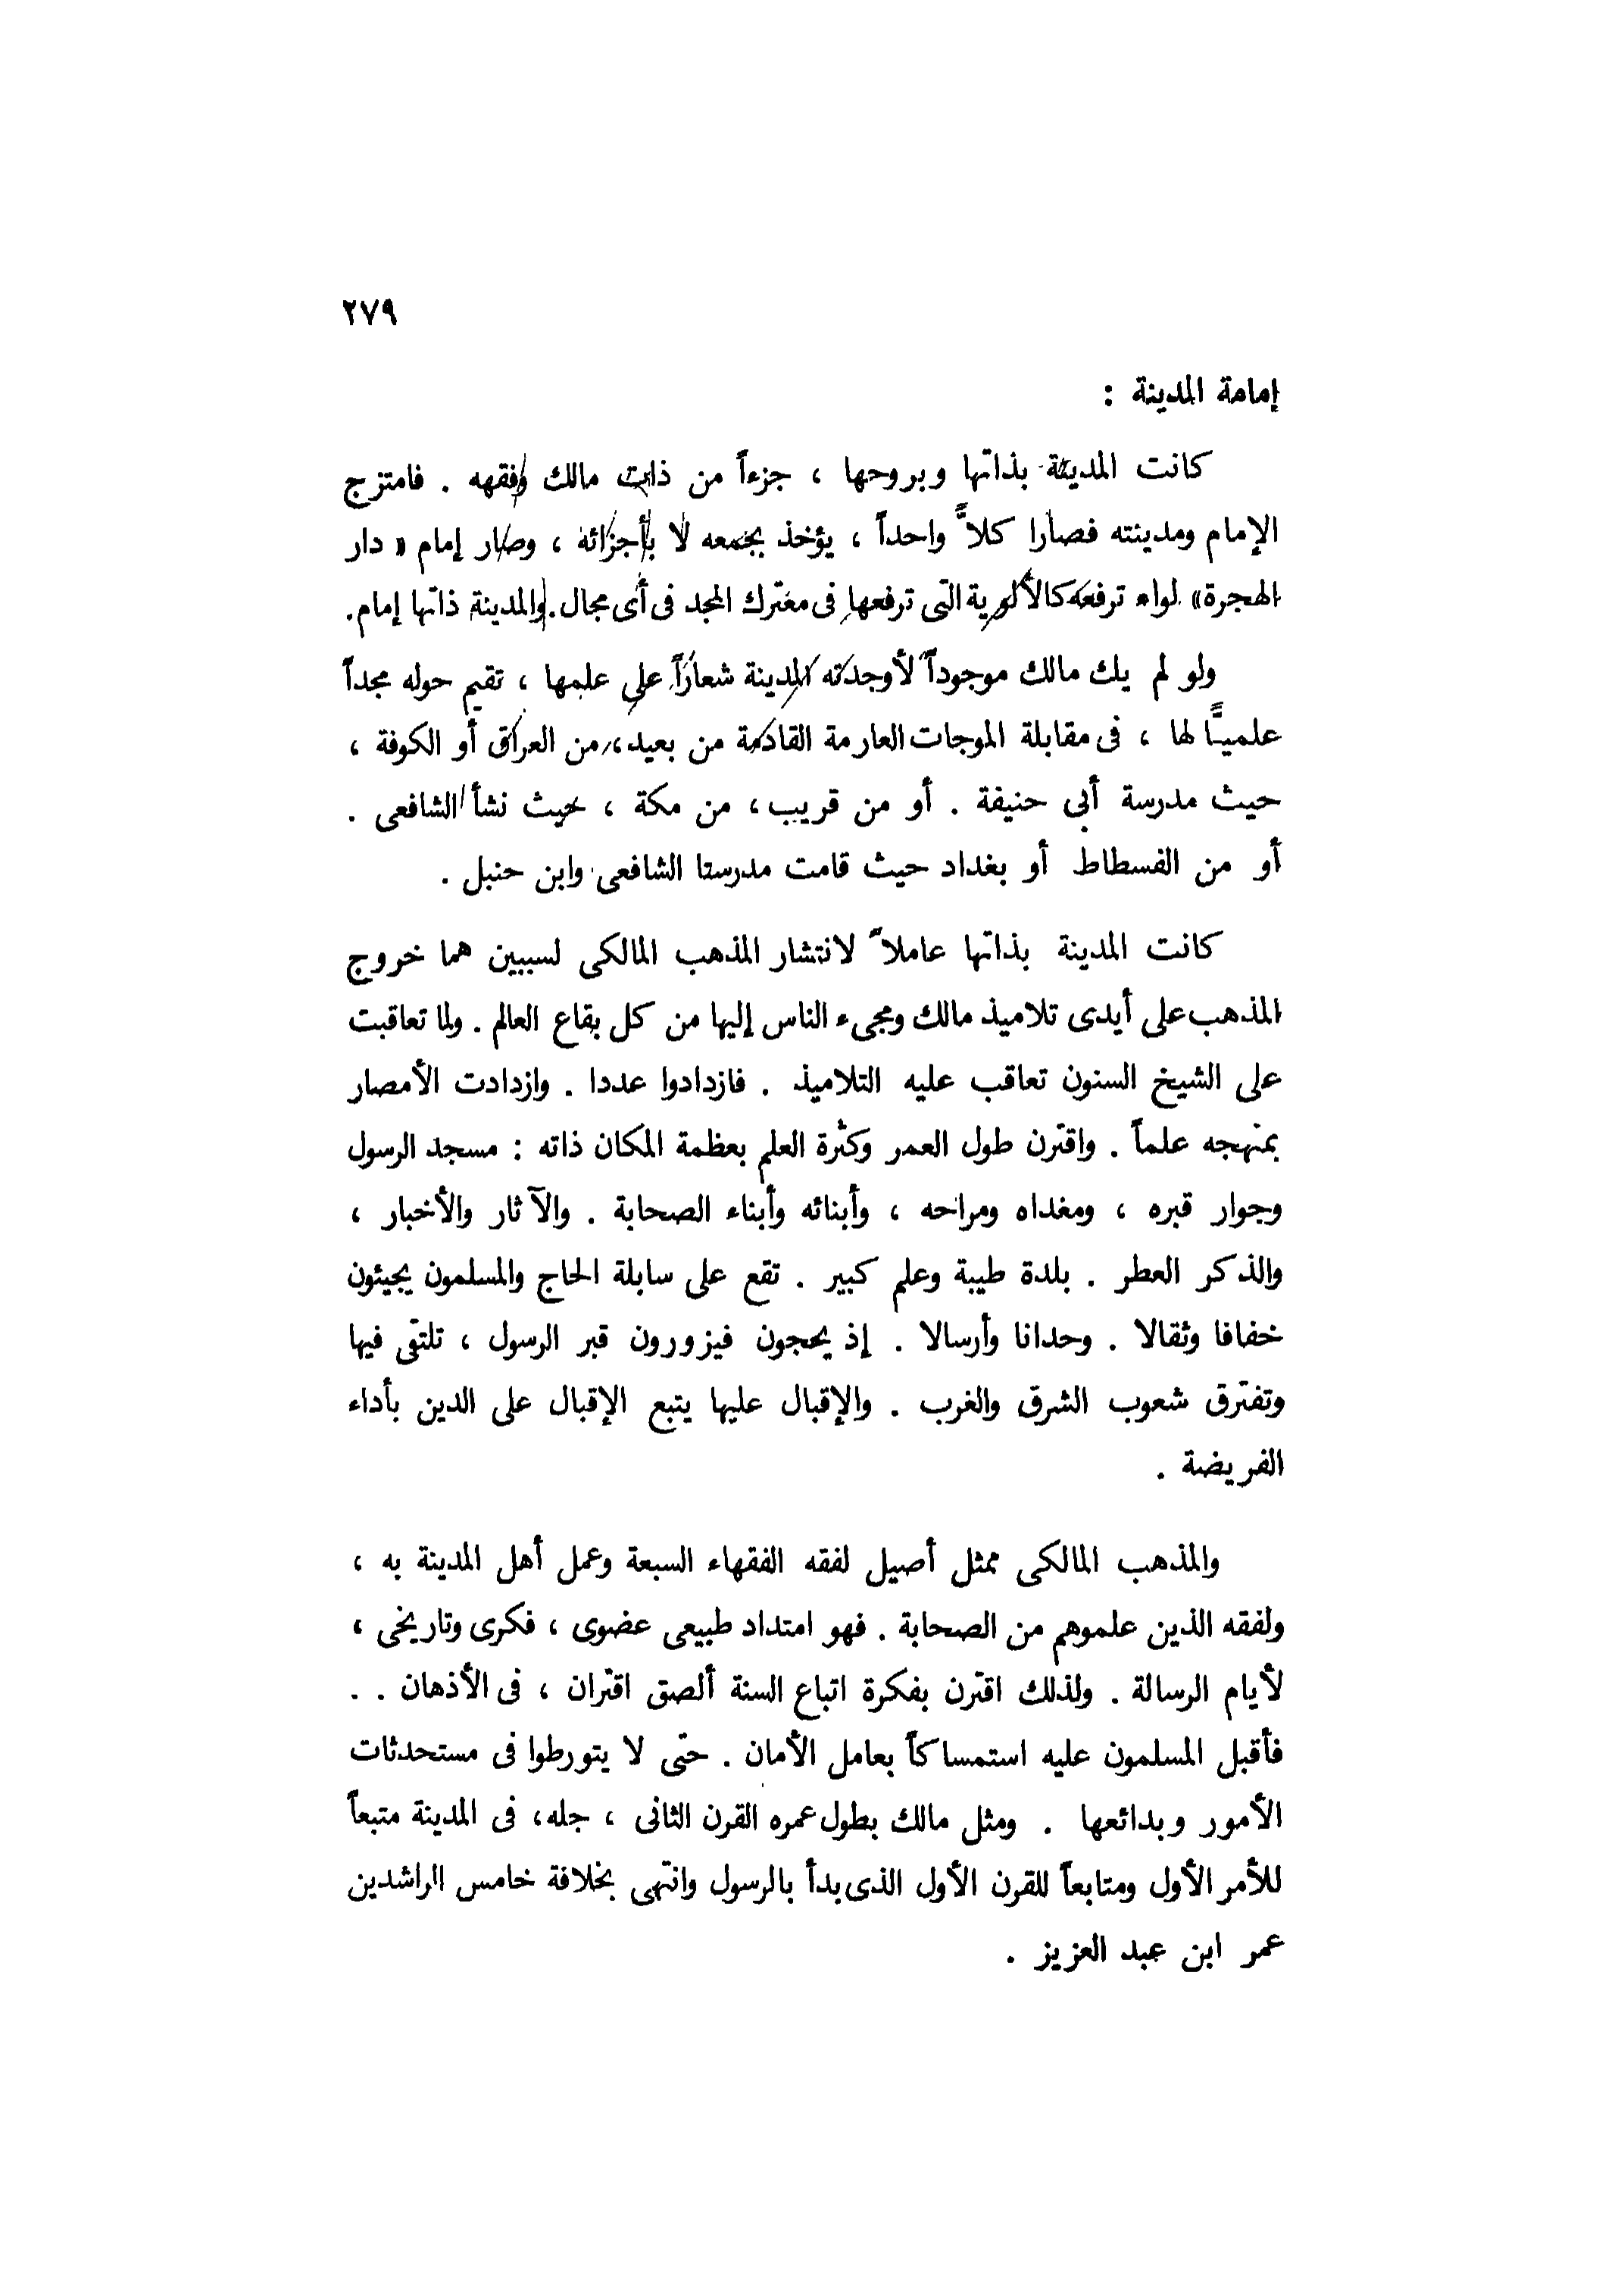 ٢٧٩
إمامة المدينة :
كانت المدينة بذاتها وبروحها ، جزءاً من ذات مالك وفقهه . فامتزج
الإمام ومدينته فصارا كلاًّ واحداً ، يؤخذ بجمعه لا بأجزائه ، وصار إمام « دار
الهجرة» لواء ترفعه كالألوية التى ترفعها فى معترك المجد فى أى مجال. والمدينة ذاتها إمام.
ولو لم يك مالك موجوداً لأوجدته المدينة شعاراً على علمها ، تقيم حوله مجداً
علميًّا لها ، فى مقابلة الموجات العارمة القادمة من بعيد، من العراق أو الكوفة ،
حيث مدرسة أبى حنيفة . أو من قريب ، من مكة ، حيث نشأ الشافعى .
أو من الفسطاط أو بغداد حيث قامت مدرستا الشافعى وابن حنبل .
كانت المدينة بذاتها عاملاً لانتشار المذهب المالكى لسببين هما خروج
المذهب على أيدى تلاميذ مالك ومجىء الناس إليها من كل بقاع العالم . ولما تعاقبت
على الشيخ السنون تعاقب عليه التلاميذ . فازدادوا عددا . وازدادت الأمصار
بمنهجه علماً . واقترن طول العمر وكثرة العلم بعظمة المكان ذاته : مسجد الرسول
وجوار قبره ، ومغداه ومراحه ، وأبنائه وأبناء الصحابة . والآثار والأخبار ،
والذكر العطر . بلدة طيبة وعلم كبير . تقع على سابلة الحاج والمسلمون يجيئون
خفافا وثقالا . وحدانا وأرسالا . إذ يحجون فيزورون قبر الرسول ، تلتقى فيها
وتفترق شعوب الشرق والغرب . والإقبال عليها يتبع الإقبال على الدين بأداء
الفريضة .
والمذهب المالكى ممثل أصيل لفقه الفقهاء السبعة وعمل أهل المدينة به ،
ولفقه الذين علموهم من الصحابة . فهو امتداد طبيعى عضوى ، فكرى وتاريخى ،
لأيام الرسالة . ولذلك اقترن بفكرة اتباع السنة ألصق اقتران ، فى الأذهان . .
فأقبل المسلمون عليه استمساكاً بعامل الأمان . حتى لا يتورطوا فى مستحدثات
الأمور وبدائعها . ومثل مالك بطول عمره القرن الثانى ، جله، فى المدينة متبعاً
للأمر الأول ومتابعاً للقرن الأول الذى بدأ بالرسول وانتهى بخلافة خامس الراشدين
عمر ابن عبد العزيز .